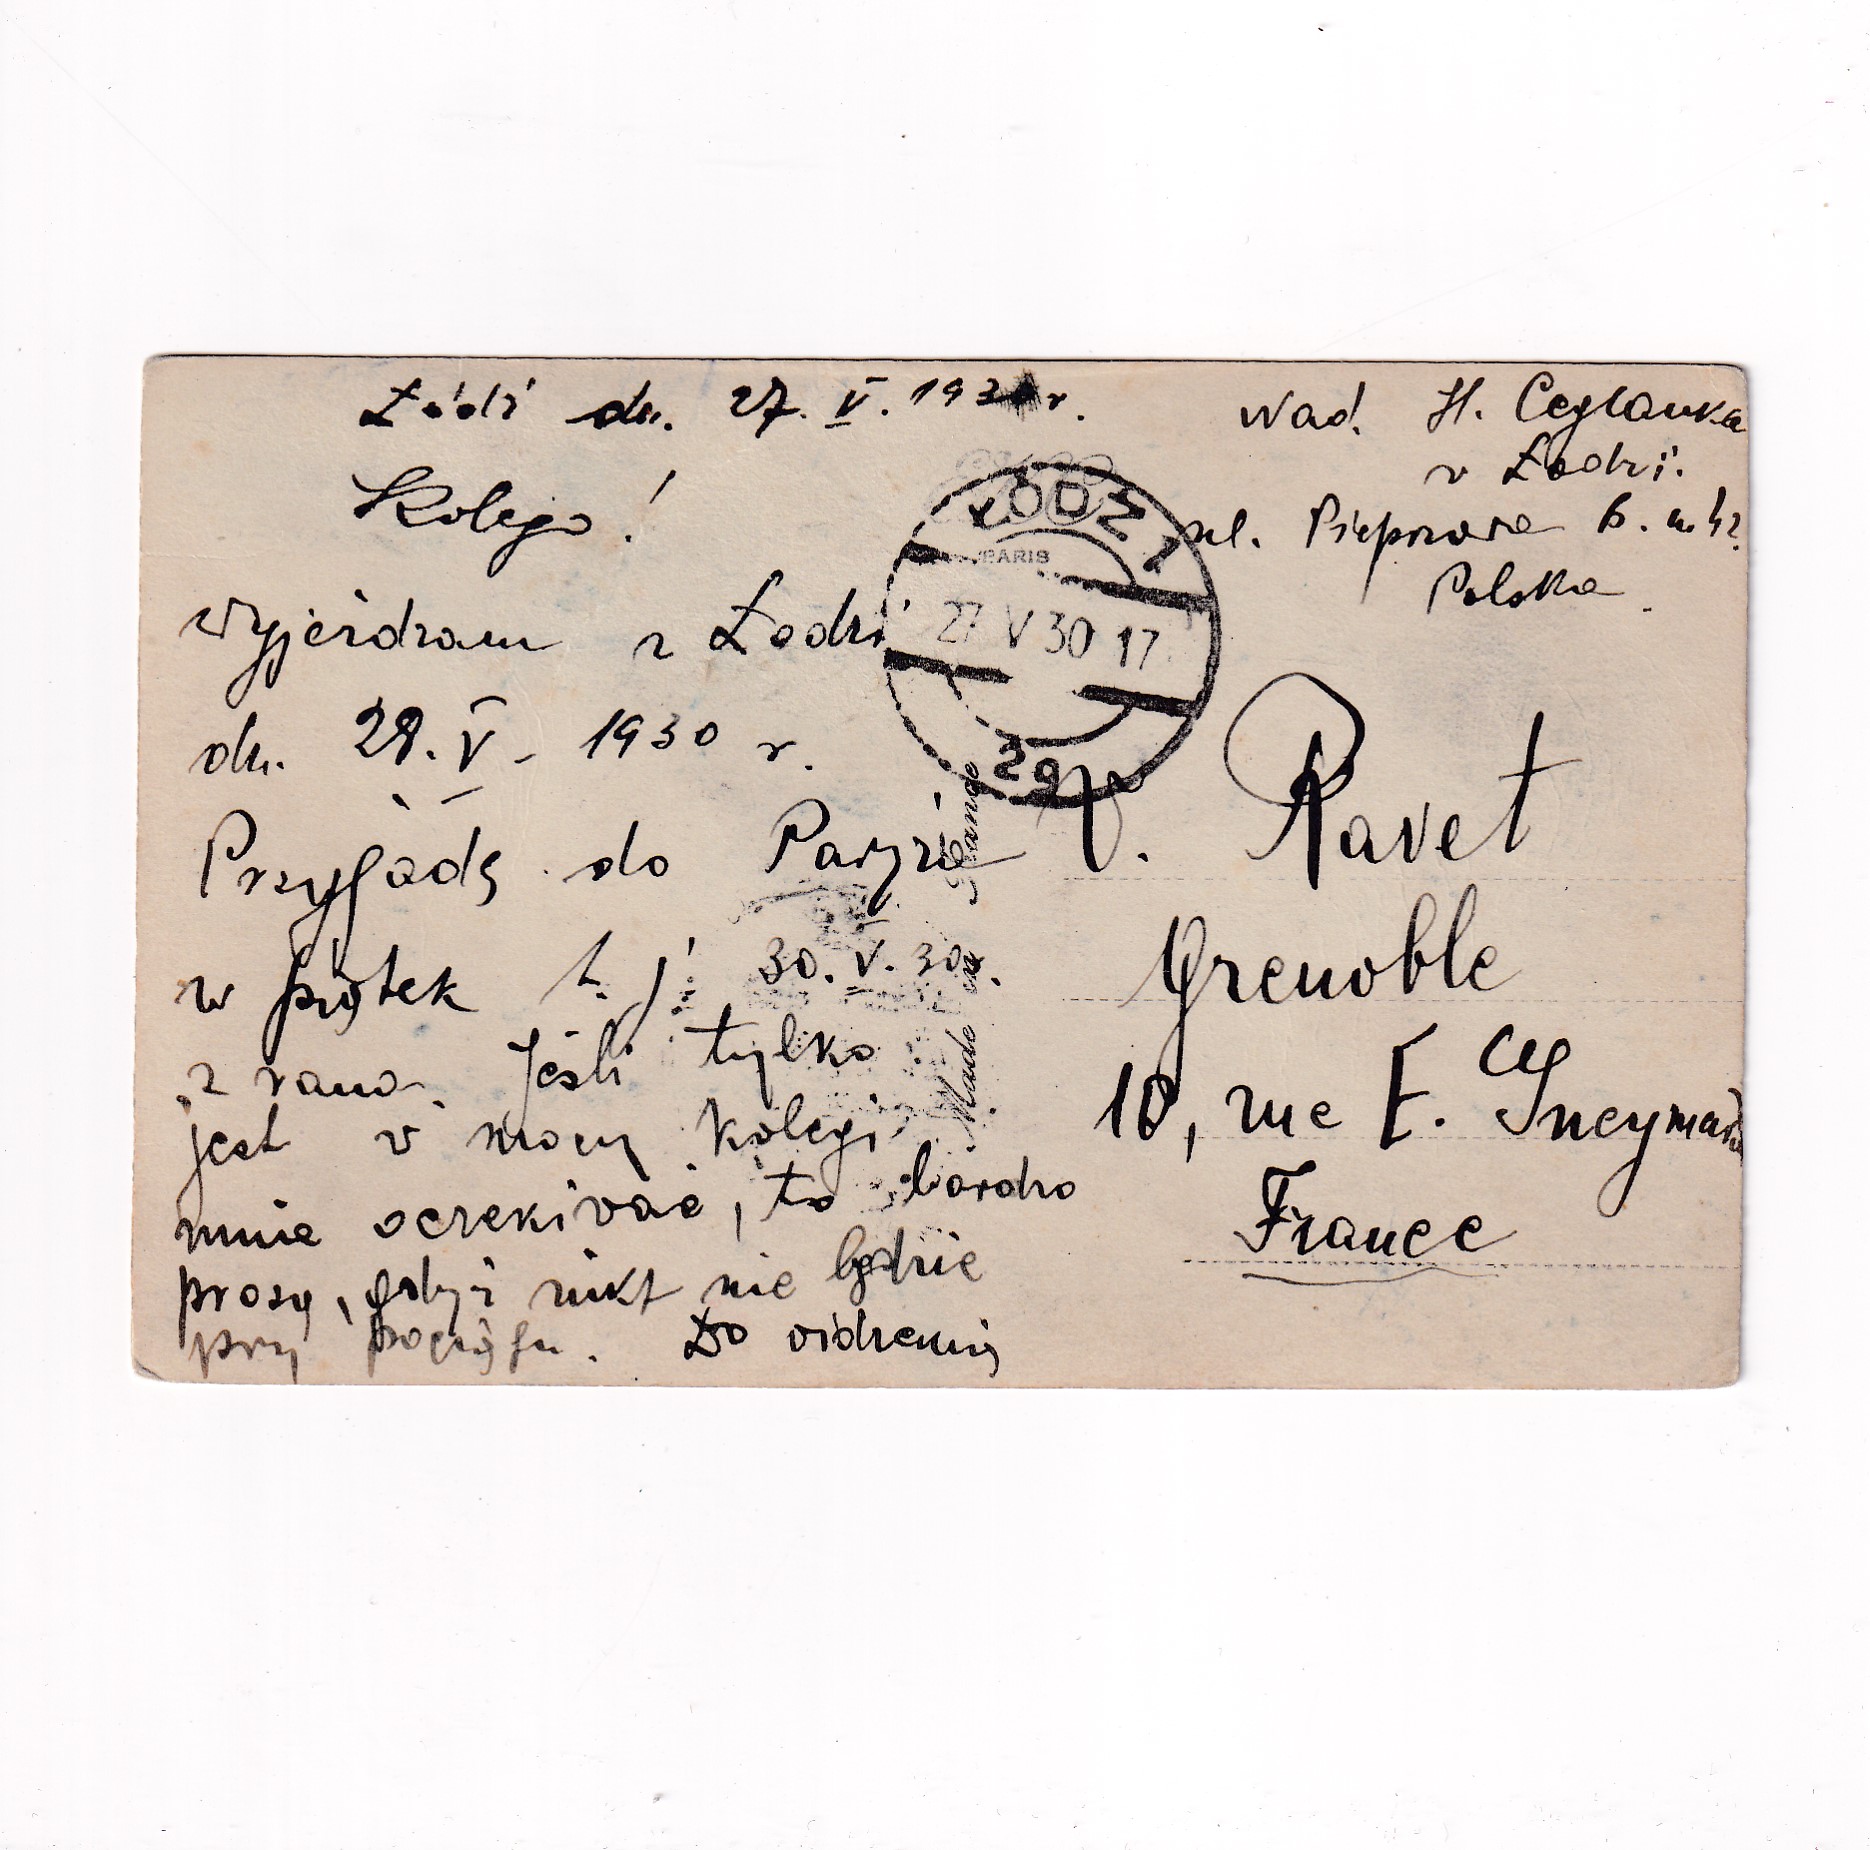 Łódź dn. 27. V. 1930 r.
Kolego!
Wyjeżdżam z Łodzi
dn. 28. V. 1930 r.
Przyjadę do Paryża
w piątek t. j. 30. V. 30 r.
z rana. Jeśli tylko
jest w mocy kolegi
mnie oczekiwać, to bardzo
proszę, gdyż nikt nie będzie
przy pociągu. Do widzenia
Nad. H. Ceglanka
w Łodzi.
ul. Pieprzowa 6. m.
Polska.
ŁÓDŹ 1
PARIS
27 V 30 17
2g
Made in France
V. Ravet
Grenoble
10, rue E. Gueymard
France